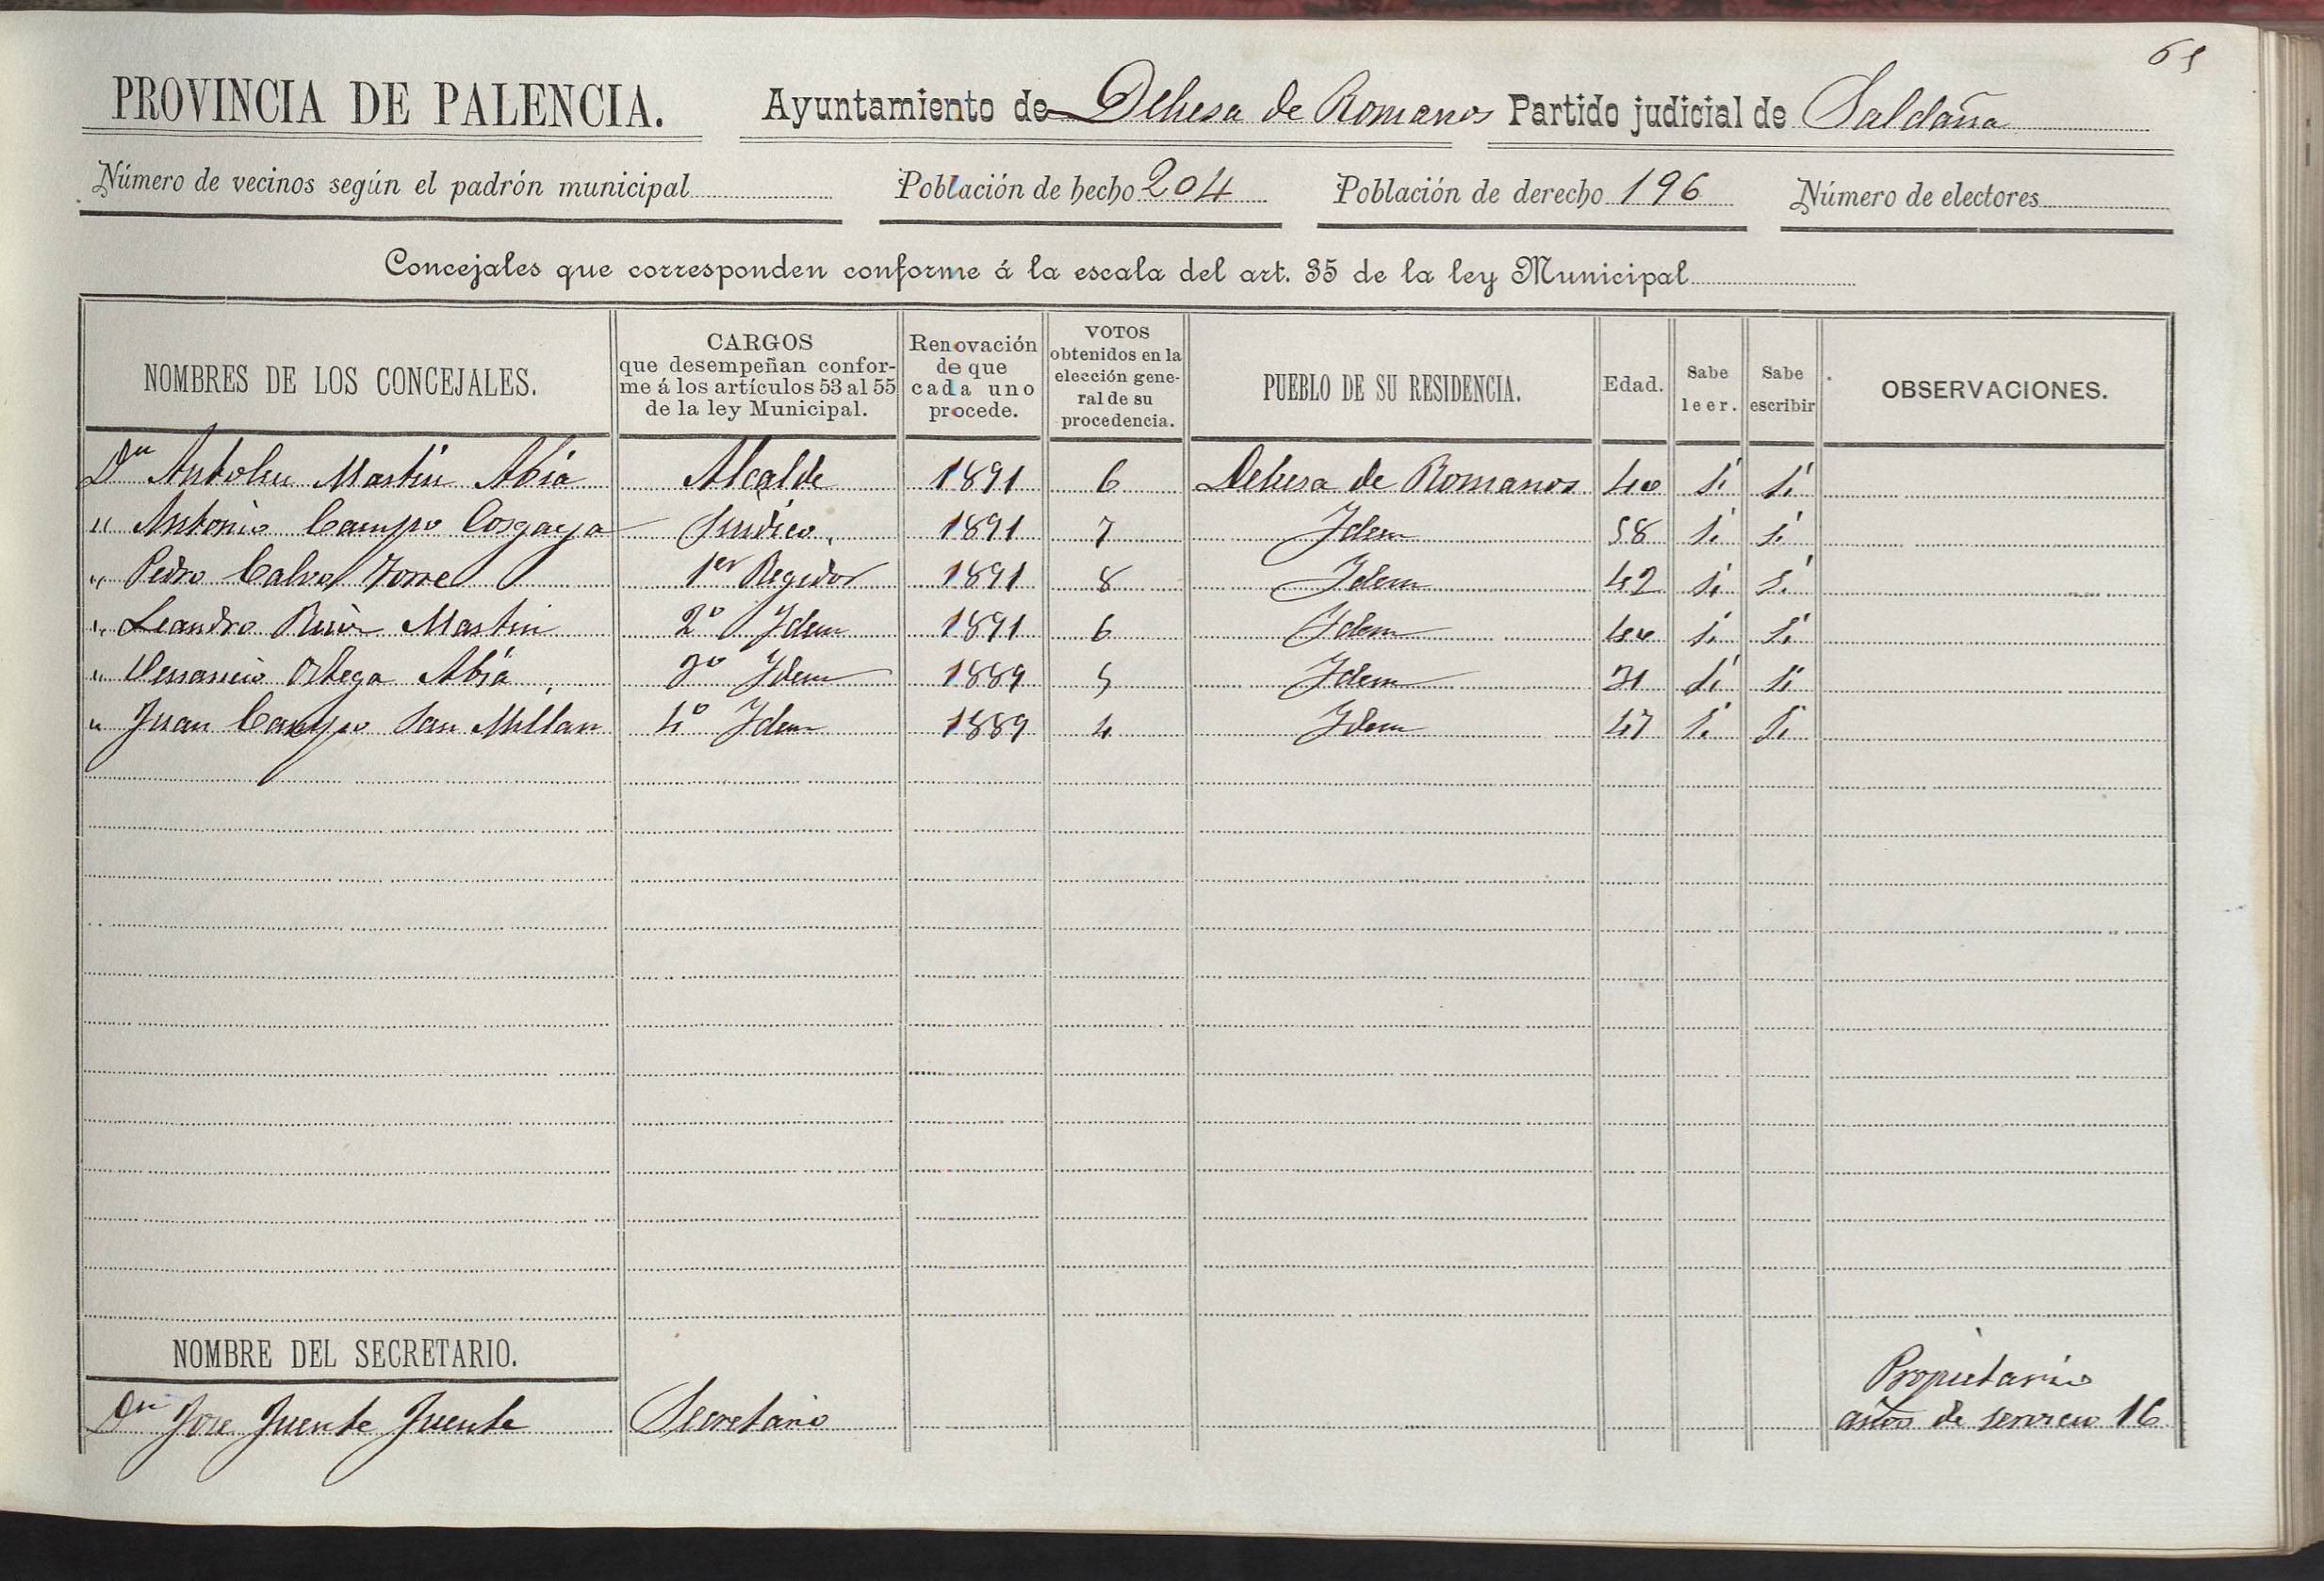 65
PROVINCIA DE PALENCIA. Ayuntamiento de Dehesa de Romanos Partido judicial de Saldaña
Número de vecinos según el padrón municipal Población de hecho 204 Población de derecho 196 Número de electores
Concejales que corresponden conforme á la escala del art. 35 de la ley Municipal
NOMBRES DE LOS CONCEJALES.
CARGOS
que desempeñan confor-
me á los artículos 53 al 55
de la ley Municipal.
Renovación
de que
cada uno
procede.
VOTOS
obtenidos en la
elección gene-
ral de su
procedencia.
PUEBLO DE SU RESIDENCIA.
Edad.
Sabe
leer.
Sabe
escribir
OBSERVACIONES.
Dn Antolin Martin Abia Alcalde 1891 6 Dehesa de Romanos 40 Si Si
" Antonio Campo Cosgaya Sindico. 1891 7 Idem 58 Si Si
" Pedro Calvo Torre 1er Regidor 1891 8 Idem 42 Si Si
" Leandro Ruiz Martin 2º Idem 1891 6 Idem 40 Si Si
" Venancio Ortega Abia 3º Idem 1889 5 Idem 31 Si Si
" Juan Campo San Millan 4º Idem 1889 4 Idem 47 Si Si
NOMBRE DEL SECRETARIO.
Propietario
Dn Jose Fuente Fuente Secretario años de servicio 16